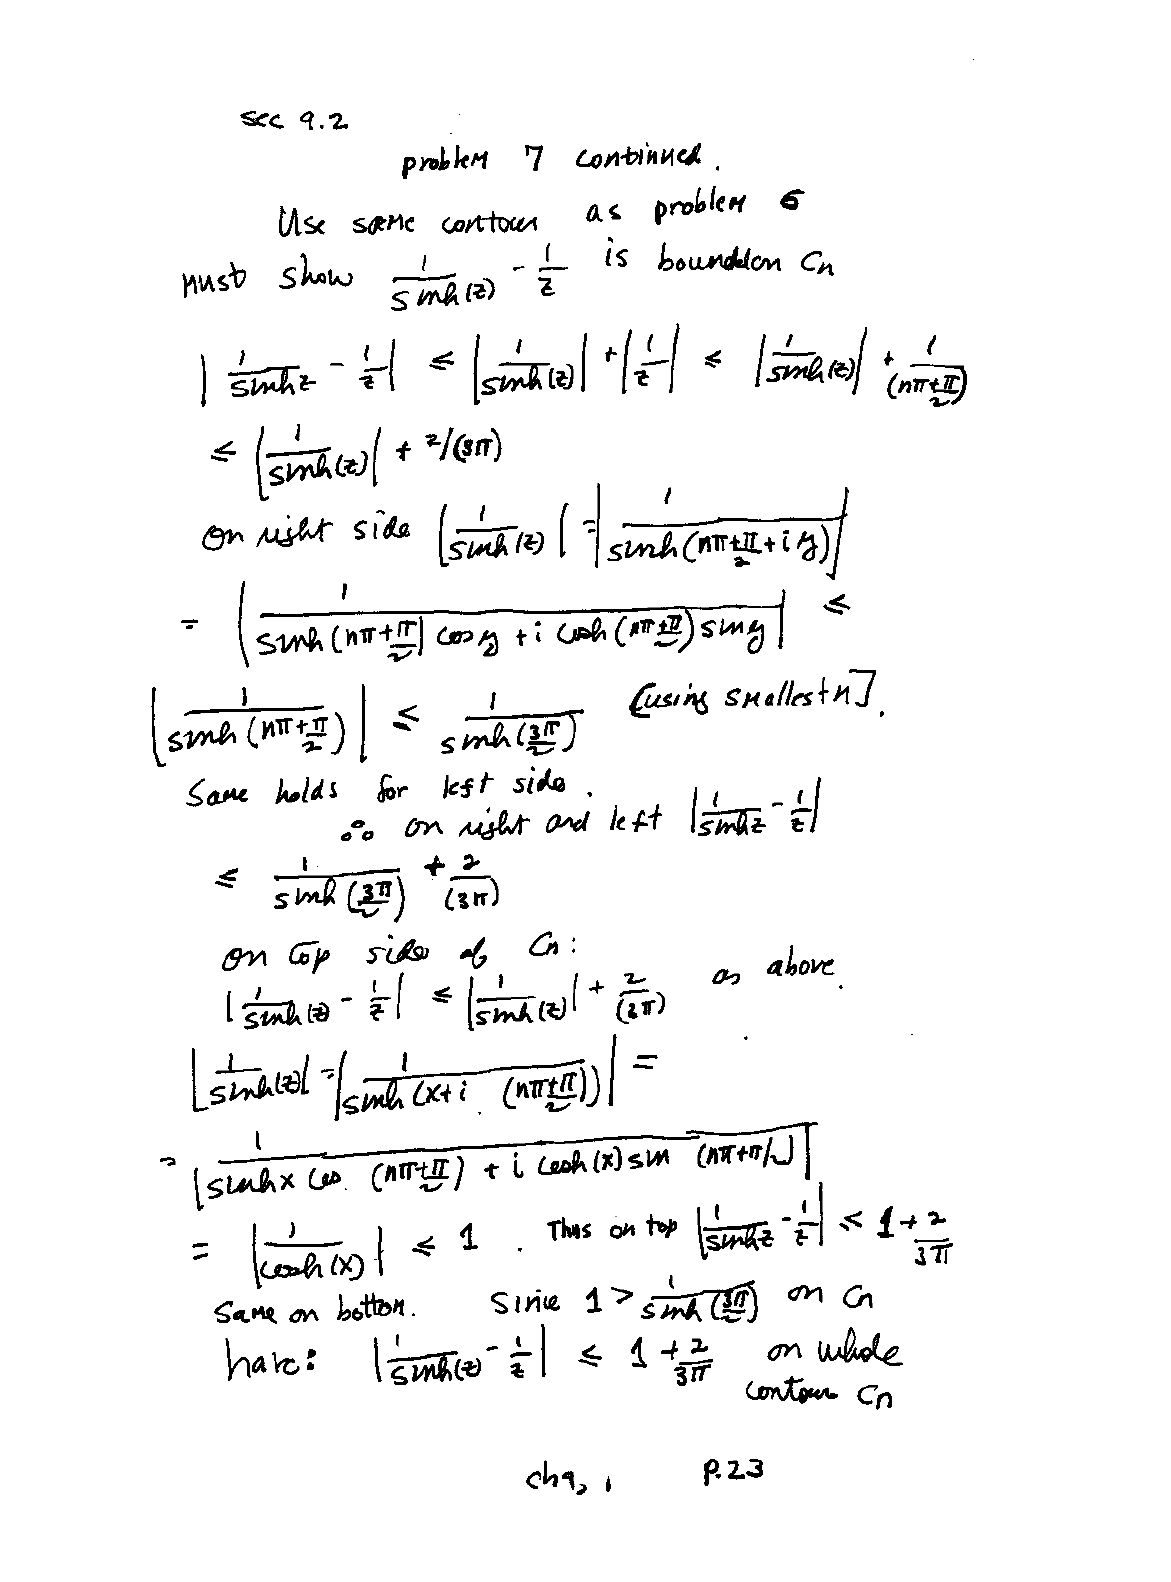 sec 9.2
problem 7 continued.
Use same contour as problem 6
must show 1/sinh(z) - 1/z is bounded on Cn
|1/sinh z - 1/z| ≤ |1/sinh(z)| + |1/z| ≤ |1/sinh(z)| + 1/(nπ+π/2)
≤ |1/sinh(z)| + 2/(3π)
on right side |1/sinh(z)| = |1/sinh(nπ+π/2+iy)|
= |1/(sinh(nπ+π/2) cos y + i cosh(nπ+π/2) sin y)| ≤
|1/sinh(nπ+π/2)| ≤ 1/sinh(3π/2) [using smallest n].
Same holds for left side.
∴ on right and left |1/sinh z - 1/z|
≤ 1/sinh(3π/2) + 2/(3π)
on top side of Cn:
|1/sinh(z) - 1/z| ≤ |1/sinh(z)| + 2/(3π) as above.
|1/sinh(z)| = |1/sinh(x+i(nπ+π/2))| =
= |1/(sinh x cos (nπ+π/2) + i cosh(x) sin (nπ+π/2))|
= |1/cosh(x)| ≤ 1. Thus on top |1/sinh z - 1/z| ≤ 1+2/3π
Same on bottom. Since 1 > 1/sinh(3π/2) on Cn
have: |1/sinh(z) - 1/z| ≤ 1+2/3π on whole
contour Cn
ch9, 1 P.23